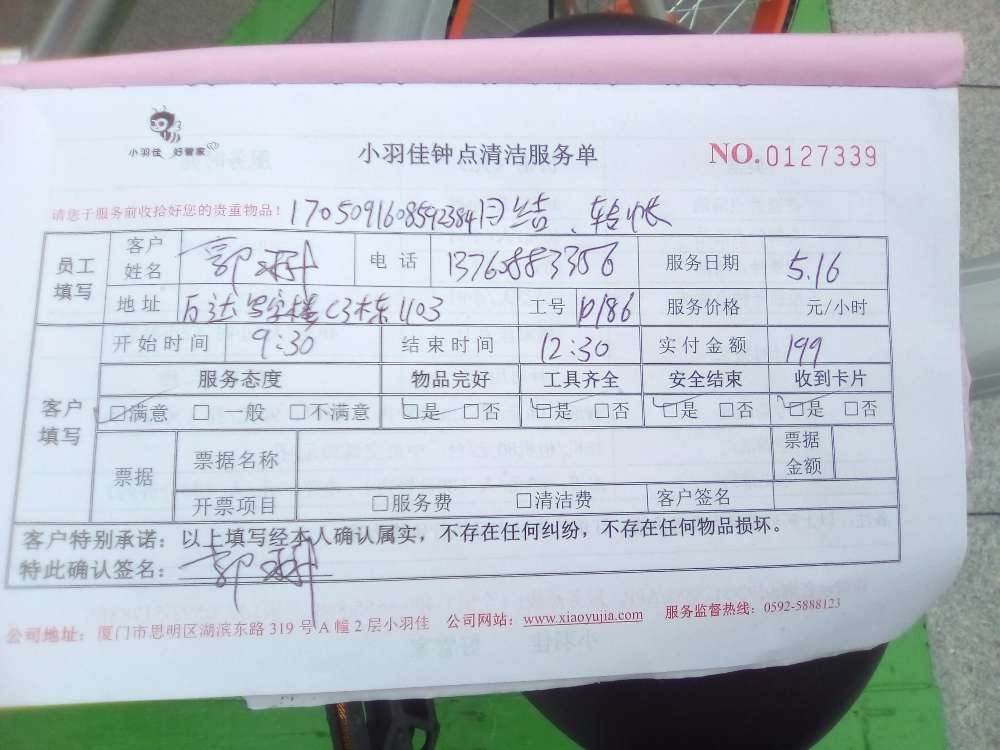 小羽佳 好管家
小羽佳钟点清洁服务单
NO.0127339
请您于服务前收拾好您的贵重物品! 1705091608592384 月结、转帐
员工填写 客户姓名 郭 电话 13760883356 服务日期 5.16
地址 万达写字楼C3栋1103 工号 P186 服务价格 元/小时
客户填写 开始时间 9:30 结束时间 12:30 实付金额 199
服务态度 物品完好 工具齐全 安全结束 收到卡片
☑满意 □一般 □不满意 ☑是 □否 ☑是 □否 ☑是 □否 ☑是 □否
票据 票据名称 票据金额
开票项目 □服务费 □清洁费 客户签名
客户特别承诺:以上填写经本人确认属实,不存在任何纠纷,不存在任何物品损坏。
特此确认签名: 郭
公司地址:厦门市思明区湖滨东路 319 号 A 幢 2 层小羽佳 公司网站:www.xiaoyujia.com 服务监督热线:0592-5888123